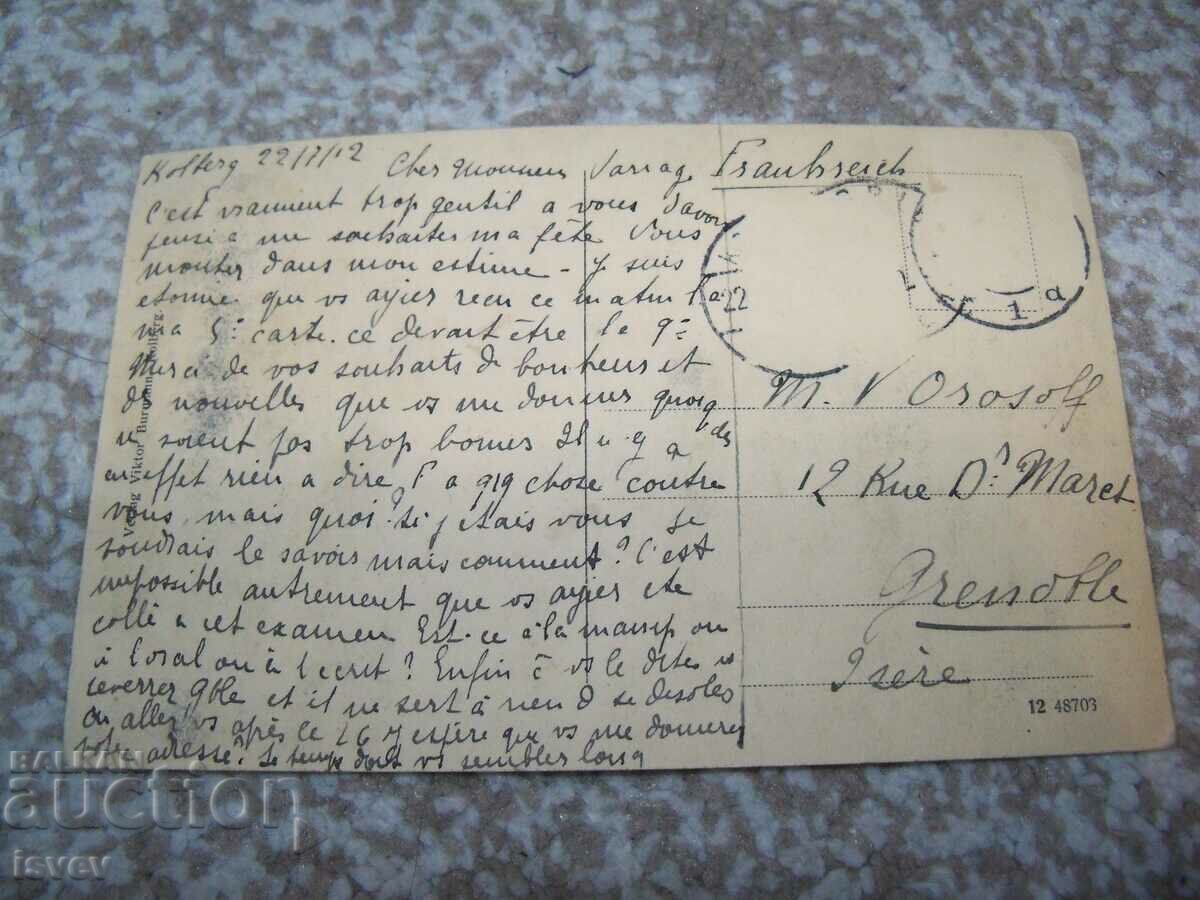 Kolberg 22/7/12
Cher Monsieur
Frankreich
C'est vraiment trop gentil a vous d'avoir
pensé a me souhaiter ma fête Vous
monter dans mon estime - Je suis
etonné que vs ayier recu ce matin
ma 5e carte. ce devait être la 9e
Merci de vos souhaits de bonheur et
de nouvelles que vs me donner quoiq
soient pas trop bonnes Il n'y a
en effet rien a dire, l'a qlq chose contre
vous, mais quoi? Si j'étais vous je
voudrais le savoir mais comment? C'est
impossible autrement que vs ayier ete
collé a cet examen Est-ce à la manip ou
à l'oral ou à l'ecrit? Enfin vs le dites vs
reverrez Gble et il ne sert à rien d se desoler
ou aller vs après le 26 J'espère que vs me donnerez
votre adresse? Le temps doit vs sembler long
M. V Orosoff
12 Rue Dr Maret
Grenoble
Isère
12 48703
Verlag Viktor Burgmann, Kolberg.
22
1 a
BALKAN
auction
isvev